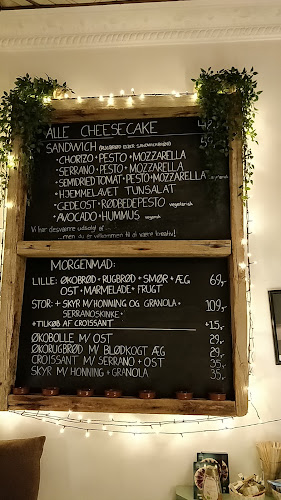 ALLE CHEESECAKE
SANDWICH (RUGBRØD ELLER SANDWICHBRØD)
• CHORIZO + PESTO + MOZZARELLA
• SERRANO + PESTO + MOZZARELLA
• SEMIDRIED TOMAT + PESTO + MOZZARELLA
• HJEMMELAVET TUNSALAT
• GEDEOST + RØDBEDEPESTO vegetarisk
• AVOCADO + HUMMUS vegansk
Vi har desværre udsolgt af ...
... men du er velkommen til at være kreativ!
MORGENMAD:
LILLE: ØKOBRØD + RUGBRØD + SMØR + ÆG 69,-
OST + MARMELADE + FRUGT
STOR: + SKYR M/HONNING OG GRANOLA + 109,-
SERRANOSKINKE +
+TILKØB AF CROISSANT +15,-
ØKOBOLLE M/ OST 29,-
ØKORUGBRØD M/ BLØDKOGT ÆG 29,-
CROISSANT M/ SERRANO + OST 35,-
SKYR M/ HONNING + GRANOLA 35,-